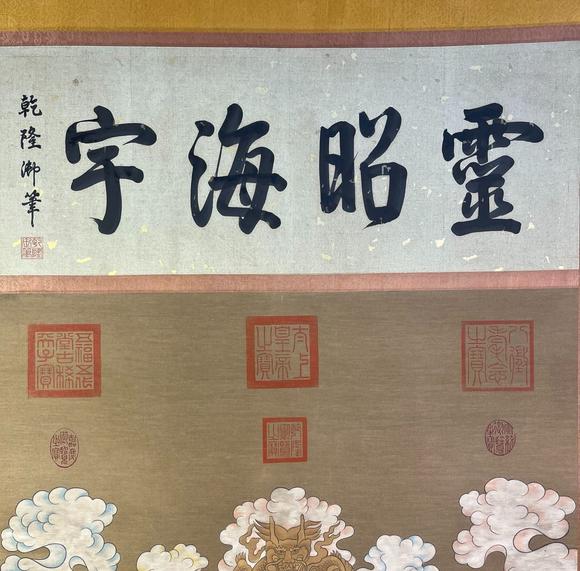 靈昭海宇
乾隆御筆
八徵耄念之寶
太上皇帝之寶
五福五代堂古稀天子寶
乾隆御覽之寶